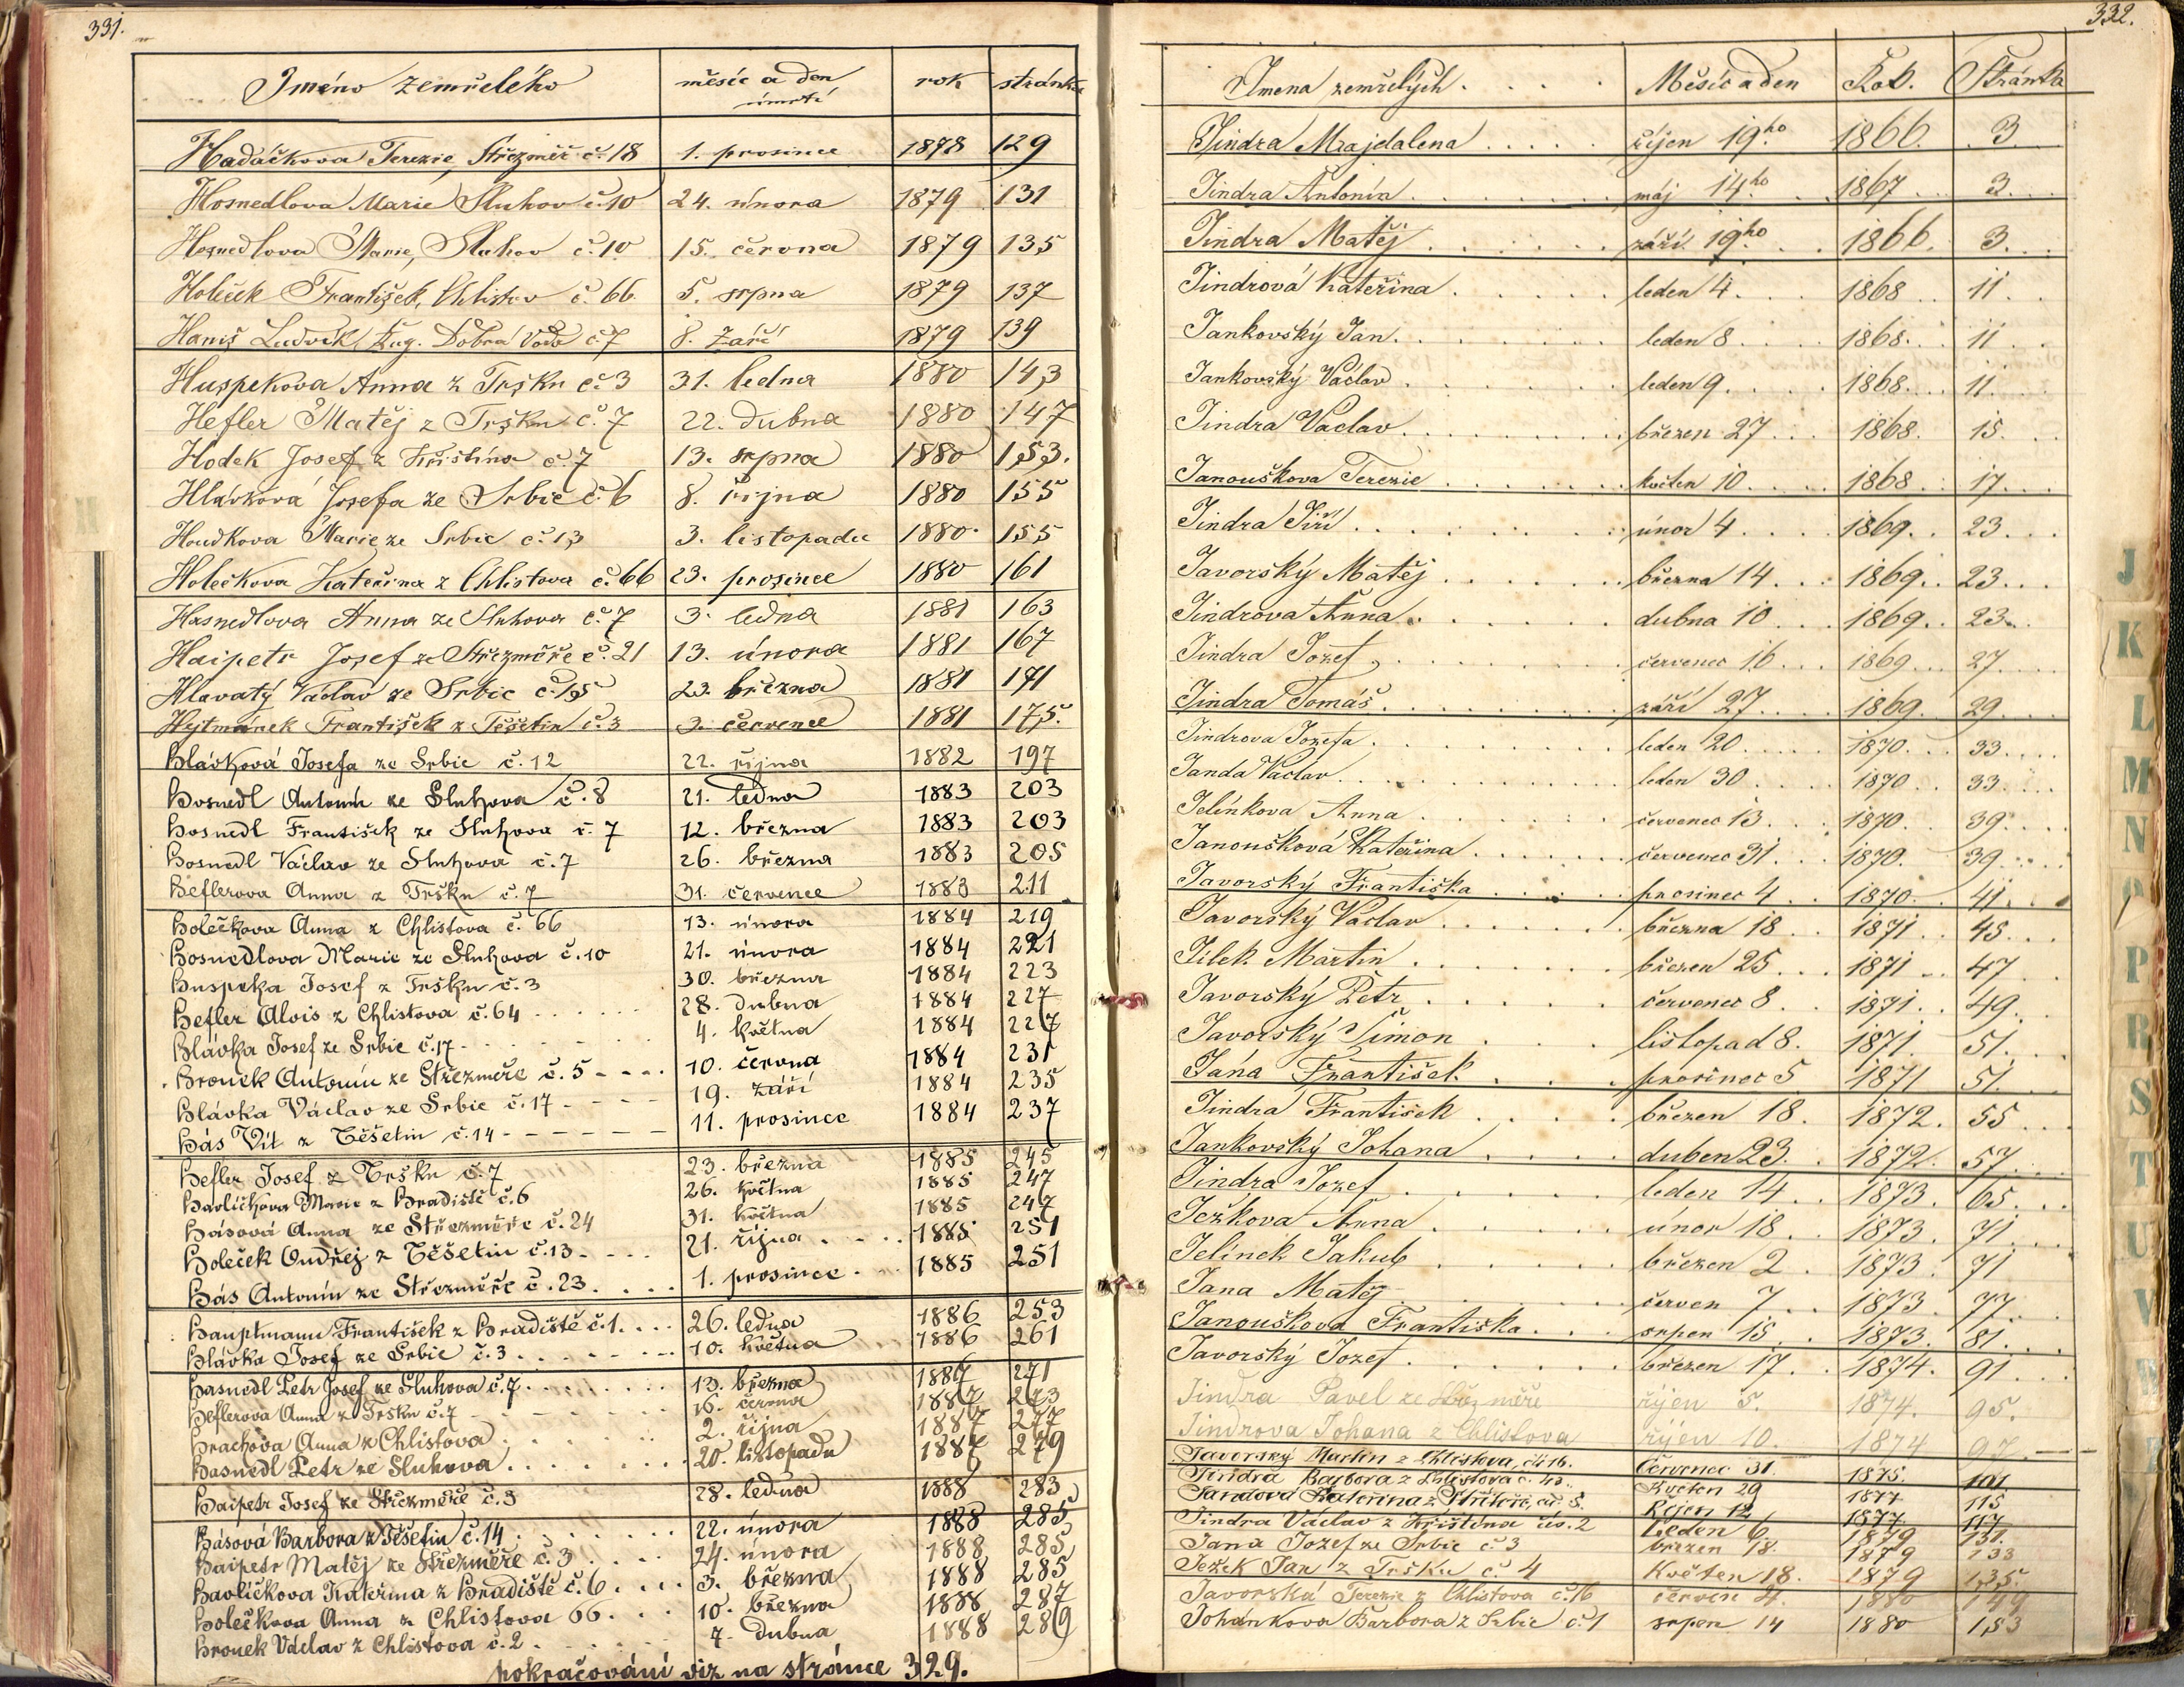 331.
Jméno zemřelého měsíc a den úmrtí rok stránka
Hadáčkova Terezie, Střezměř č. 18 1. prosince 1878 129
Hosnedlova Marie Sluhov č. 10 24. února 1879 131
Hosnedlova Marie, Sluhov č. 10 15. června 1879 135
Holeček František, Chlistov č. 66 5. srpna 1879 137
Haniš Ludvík Dobrá Voda č. 7 8. Září 1879 139
Huspekova Anna z Tršku č. 3 31. ledna 1880 143
Hefler Matěj z Tršku č. 7 22. dubna 1880 147
Hodek Josef z Křištína č. 7 13. srpna 1880 153.
Hlávková Josefa ze Srbic č. 6 8. října 1880 155
Houdkova Marie ze Srbic č. 13 3. listopadu 1880 155
Holečkova Kateřina z Chlistova č. 66 23. prosince 1880 161
Hasnedlova Anna ze Sluhova č. 7 3. ledna 1881 163
Haipetr Josef ze Střezměře č. 21 13. února 1881 167
Hlavatý Václav ze Srbic 23. března 1881 171
Hejtmánek František z Těšetin č. 3 3. července 1881 175.
Hlávková Josefa ze Srbic č. 12 22. října 1882 197
Hosnedl Antonín ze Sluhova č. 8 21. ledna 1883 203
Hosnedl František ze Sluhova č. 7 12. března 1883 203
Hosnedl Václav ze Sluhova č. 7 26. března 1883 205
Heflerova Anna z Tršku č. 7 31. července 1883 211
Holečkova Anna z Chlistova č. 66 13. února 1884 219
Hosnedlova Marie ze Sluhova č. 10 21. února 1884 221
Huspeka Josef z Tršku č. 3 30. března 1884 223
Hefler Alois z Chlistova č. 64 28. dubna 1884 227
Hlávka Josef ze Srbic č. 17 4. května 1884 227
Hronek Antonín ze Střezměře č. 5 10. června 1884 231
Hlávka Václav ze Srbic č. 17 19. září 1884 235
Hás Vít z Těšetin č. 14 11. prosince 1884 237
Hefler Josef z Tršku č. 7 23. března 1885 245
Havlíčkova Marie z Hradiště č. 6 26. května 1885 247
Hásová Anna ze Střezměře č. 24 31. května 1885 247
Holeček Ondřej z Těšetin č. 13 21. října 1885 251
Hás Antonín ze Střezměře č. 23. 1. prosince 1885 251
Hauptmann František z Hradiště č. 1. 26. ledna 1886 253
Hlávka Josef ze Srbic č. 3 10. května 1886 261
Hasnedl Petr Josef ze Sluhova č. 7 13. března 1887 271
Heflerova Anna z Tršku č. 7 16. června 1887 273
Hrachova Anna z Chlistova 2. října 1887 277
Hasnedl Petr ze Sluhova 20. listopadu 1887 279
Haipetr Josef ze Střezměře č. 3 28. ledna 1888 283
Hásová Barbora z Těšetin č. 14 22. února 1888 285
Haipetr Matěj ze Střezměře č. 3 24. února 1888 285
Havlíčkova Kateřina z Hradiště č. 6 3. března 1888 285
Holečkova Anna z Chlistova 66 10. března 1888 287
Hronek Václav z Chlistova č. 2 7. dubna 1888 289
pokračování viz na stránce 329.
332.
Jmena zemřelých Měsíc a den Rok. Stránka
Jindra Majdalena říjen 19ho 1866. 3
Jindra Antonín máj 14ho 1867 3
Jindra Matěj září 19ho 1866. 3
Jindrová Kateřina leden 4. 1868 11
Jankovský Jan leden 8 1868. 11
Jankovský Václav leden 9 1868. 11
Jindra Vaclav březen 27 1868. 15
Janouškova Terezie květen 10 1868 17
Jindra Jiří únor 4 1869. 23
Javorský Matěj března 14 1869. 23
Jindrova Anna dubna 10 1869. 23
Jindra Jozef červenec 16 1869 27
Jindra Tomáš září 27 1869. 29
Jindrova Jozefa leden 20 1870 33
Janda Vaclav leden 30 1870 33
Jelínkova Anna červenec 13 1870. 39
Janoušková Kateřina červenec 31. 1870. 39
Javorský Františka prosinec 4 1870. 41
Javorský Vaclav března 18 1871 45
Jílek Martin březen 25 1871 47
Javorský Petr červenec 8 1871. 49
Javorský Šimon listopad 8. 1871 51
Jána František prosinec 5 1871 51
Jindra František březen 18. 1872. 55
Jankovský Johana duben 23. 1872. 57
Jindra Jozef leden 14 1873. 65
Ježkova Anna únor 18 1873. 71
Jelinek Jakub březen 2 1873. 71
Jana Matěj červen 7 1873. 77
Janouškova Františka srpen 15 1873. 81
Javorský Jozef březen 17. 1874. 91
Jindra Pavel ze Střezměře říjen 5. 1874. 95.
Jindrova Johana z Chlistova říjen 10. 1874 97
Javorský Martin z Chlistova, č. 16. Červenec 31. 1875. 101
Jindra Barbora z Chlistova č. 43. Květen 29 1877 115
Jandová Kateřina z Říjen 12 1877 117
Jindra Václav z Křištína čís. 2 Leden 6. 1879 131.
Jana Jozef ze Srbic č 3 březen 18. 1879 133
Ježek Jan z Tršku č 4 Květen 18. 1879 135.
Javorská Terezie z Chlistova č. 16 červen 1880 149
Johankova Barbora z Srbic č. 1 srpen 14 1880 153
J
K
L
M
N
O
P
R
S
T
U
V
W
Z